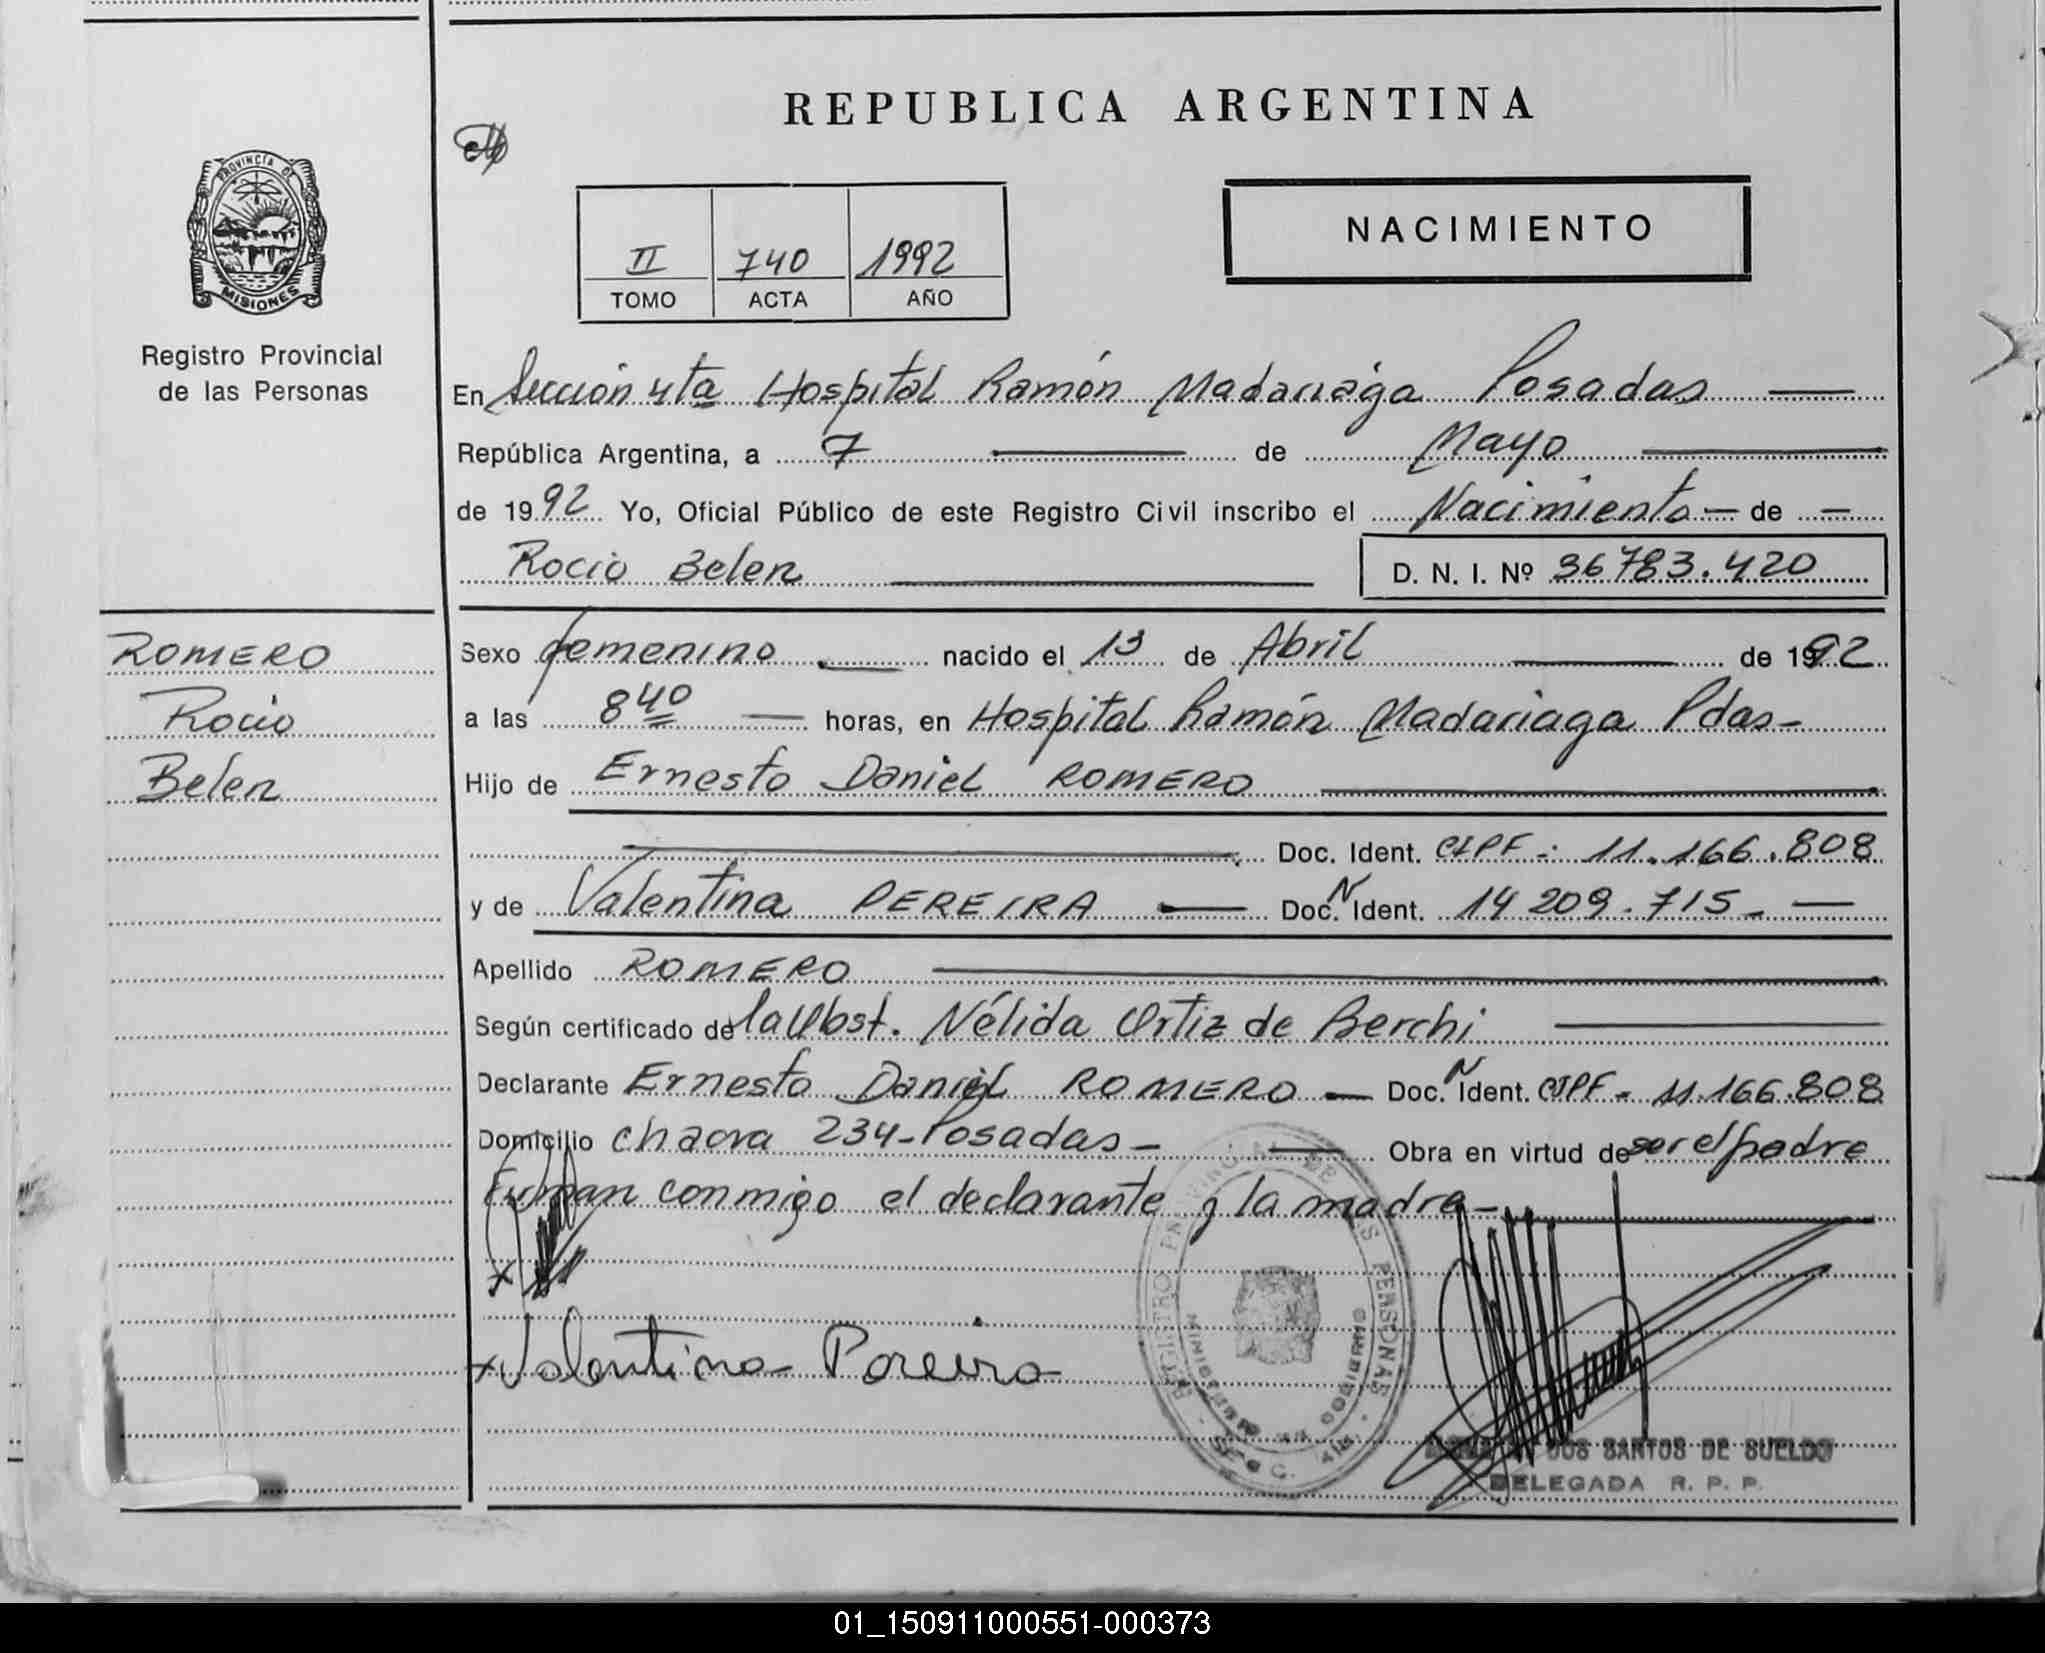 REPUBLICA ARGENTINA
PROVINCIA DE
MISIONES
Registro Provincial
de las Personas
II 740 1992
TOMO ACTA AÑO
NACIMIENTO
En Sección 4ta Hospital Ramón Madariaga Posadas —
República Argentina, a 7 — de Mayo —
de 1992 Yo, Oficial Público de este Registro Civil inscribo el Nacimiento — de —
Rocio Belen — D. N. I. Nº 36783.420
ROMERO
Rocio
Belen
Sexo femenino — nacido el 13 de Abril — de 1992
a las 8 40 — horas, en Hospital Ramón Madariaga Pdas-
Hijo de Ernesto Daniel ROMERO —
— Doc. Ident. CIPF-: 11.166.808
y de Valentina PEREIRA — Doc. N Ident. 14 209.715- —
Apellido ROMERO —
Según certificado de la Obst. Nélida Ortiz de Berchi —
Declarante Ernesto Daniel ROMERO — Doc. N Ident. CIPF- 11.166.808
Domicilio 234-Posadas- — Obra en virtud de ser el padre
Firman conmigo el declarante y la madre-
x
x Valentina Pereira
REGISTRO PROVINCIAL DE LAS PERSONAS
MINISTERIO DE GOBIERNO
DOS SANTOS DE SUELDO
DELEGADA R. P. P.
01_150911000551-000373